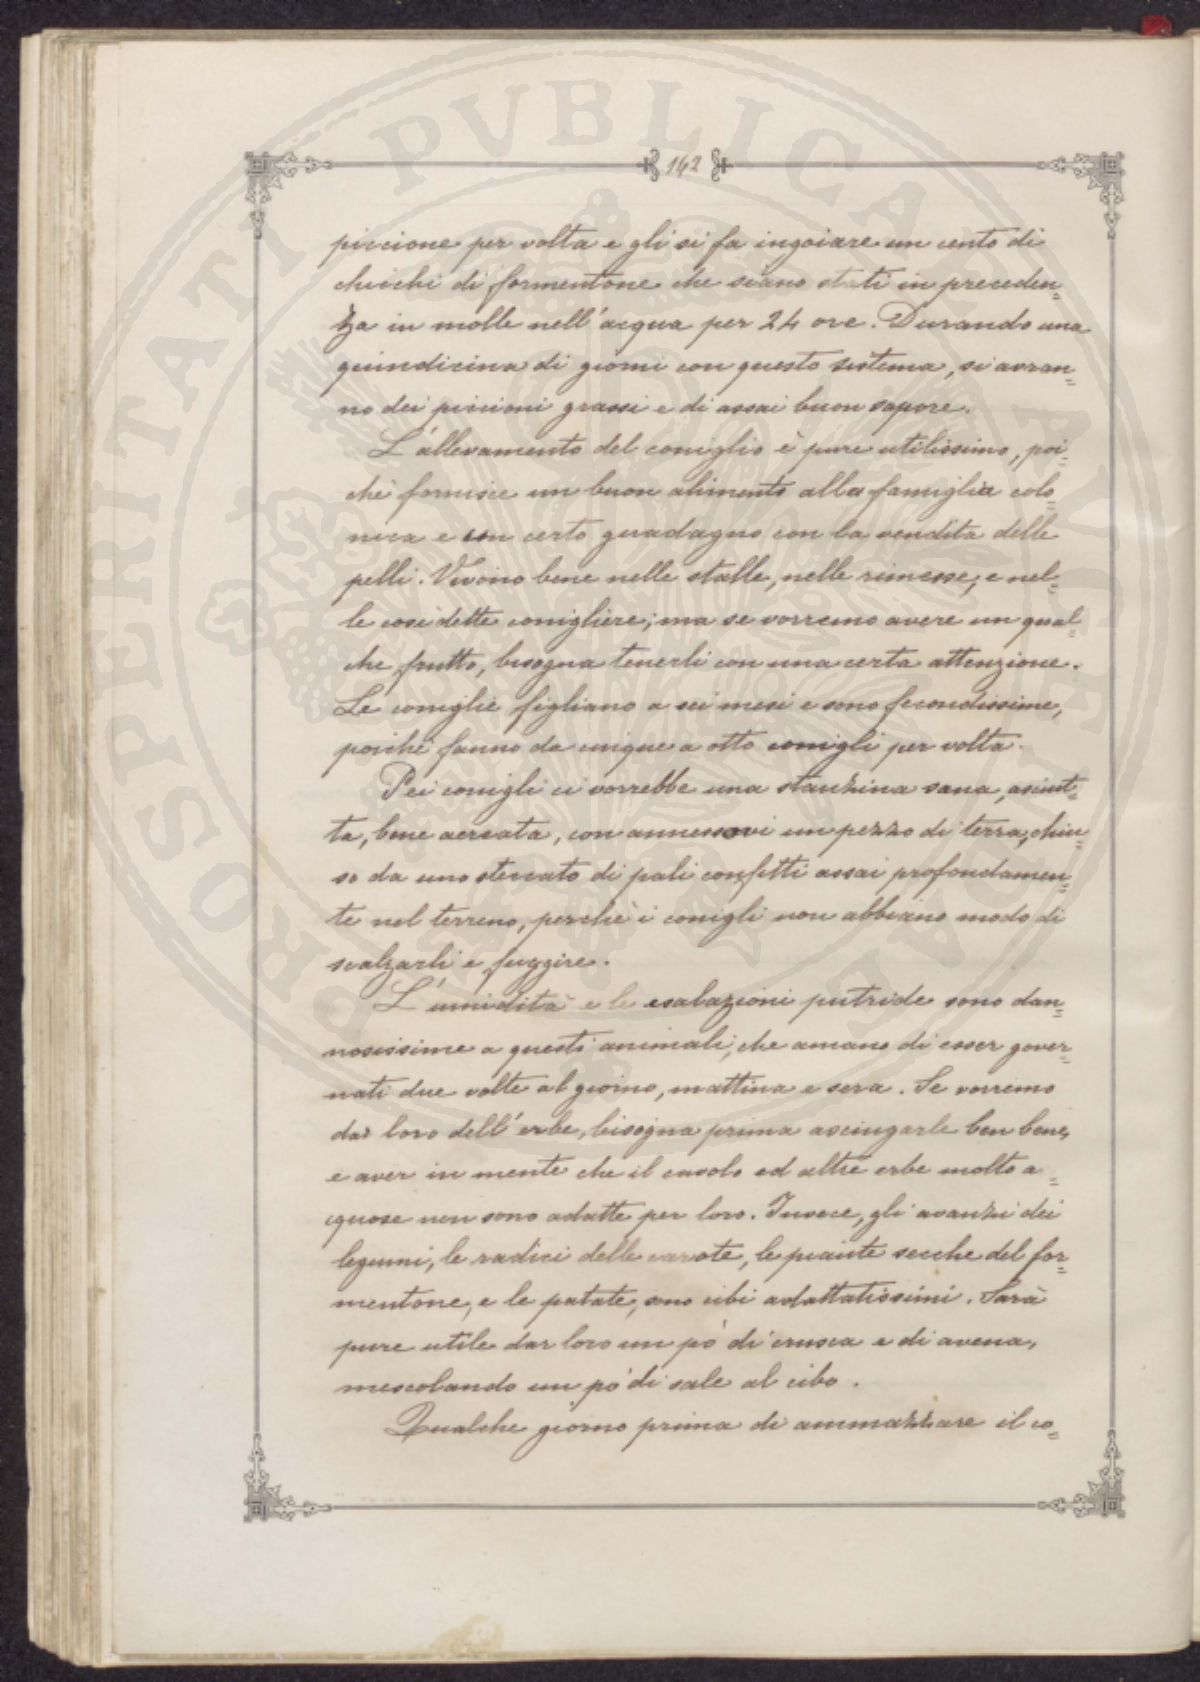 PROSPERITATI PVBLICAE AVGENDAE
142
piccione per volta e gli si fa ingoiare un cento di
chicchi di formentone che siano stati in preceden=
za in molle nell'acqua per 24 ore. Durando una
quindicina di giorni con questo sistema, si avran=
no dei piccioni grassi e di assai buon sapore.
L'allevamento del coniglio è pure utilissimo, poi=
chè fornisce un buon alimento alla famiglia colo=
nica e un certo guadagno con la vendita delle
pelli. Vivono bene nelle stalle, nelle rimesse, e nel=
le così dette conigliere; ma se vorremo avere un qual=
che frutto, bisogna tenerli con una certa attenzione.
Le coniglie figliano a sei mesi e sono fecondissime,
poichè fanno da cinque a otto conigli per volta.
Pei conigli ci vorrebbe una stanzina sana, asciut=
ta, bene aereata, con annessovi un pezzo di terra, chiu=
so da uno steccato di pali confitti assai profondamen=
te nel terreno, perchè i conigli non abbiano modo di
scalzarli e fuggire.
L'umidità e le esalazioni putride sono dan=
nosissime a questi animali, che amano di esser gover=
nati due volte al giorno, mattina e sera. Se vorremo
dar loro dell'erbe, bisogna prima asciugarle ben bene,
e aver in mente che il cavolo ed altre erbe molto a=
cquose non sono adatte per loro. Invece, gli avanzi dei
legumi, le radici delle carote, le piante secche del for=
mentone, e le patate, sono cibi adattatissimi. Sarà
pure utile dar loro un pò di crusca e di avena,
mescolando un pò di sale al cibo.
Qualche giorno prima di ammazzare il co=